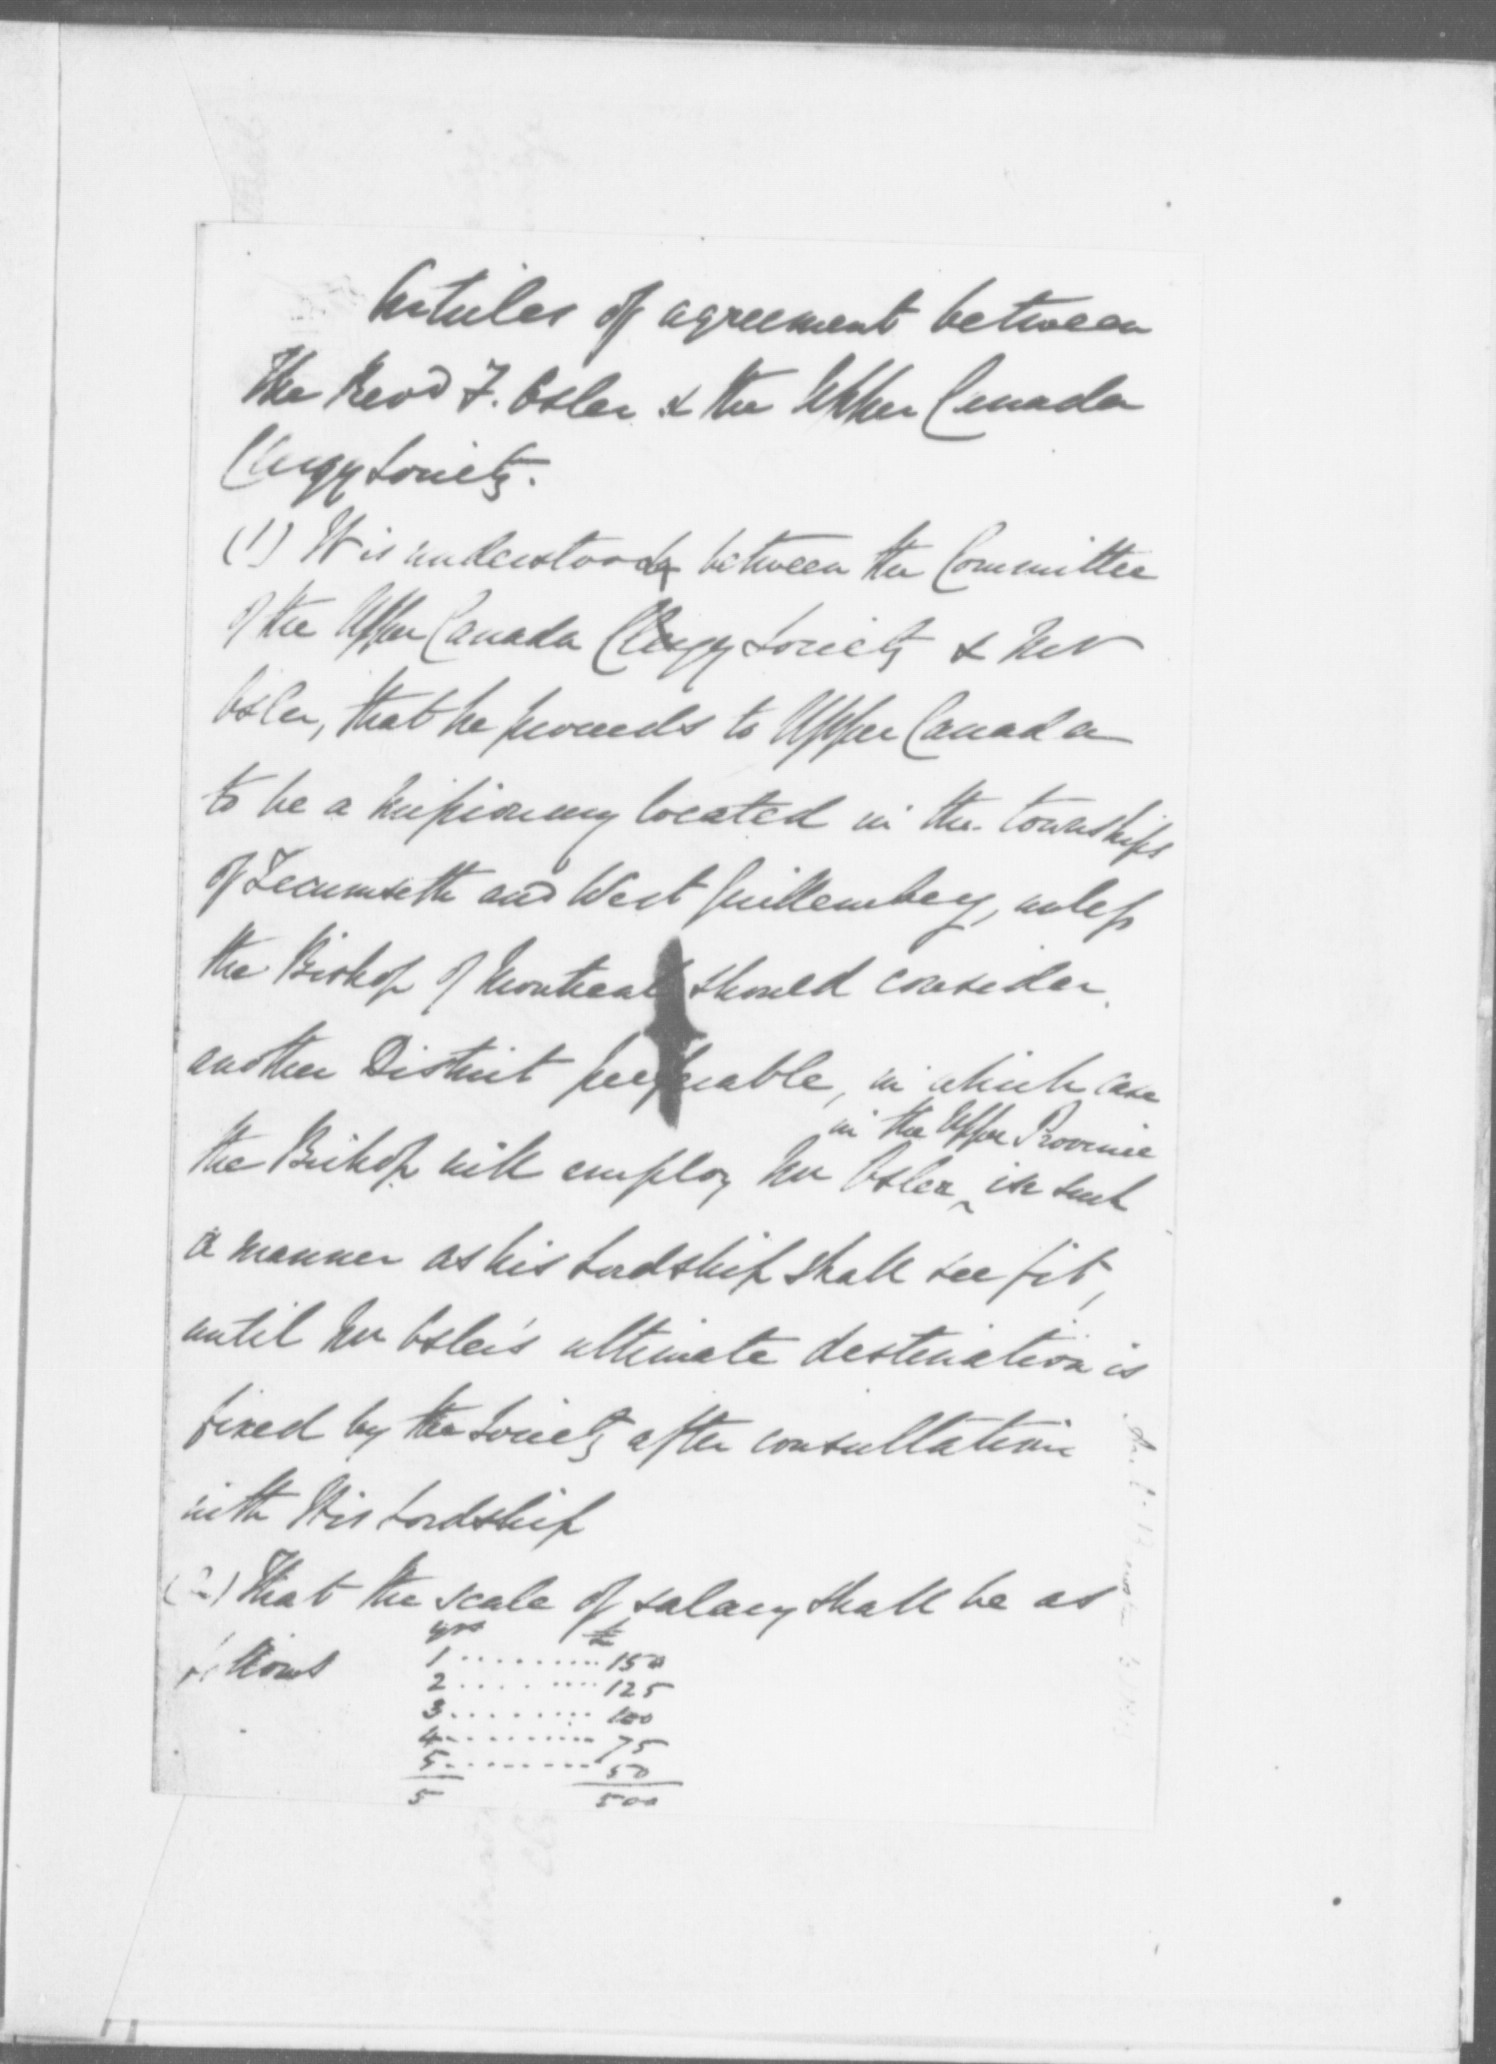 Articles of agreement between
The Revd F. Osler & the Upper Canada
Clergy Society.
(1) It is understood between the Committee
of the Upper Canada Clergy Society & Mr
Osler, that he proceeds to Upper Canada
to be a missionary located in the townships
of Tecumseth and West Guillemberg, unless
the Bishop of Montreal should consider
another District preferable, in which case
in the Upper Province
the Bishop will employ Mr Osler ^ in such
a manner as his Lordship shall see fit,
until Mr Osler's ultimate destination is
fixed by the Society after consultation
with His Lordship
(2) That the scale of salary shall be as
follows
yrs £
1 ......... 150
2 ......... 125
3 ......... 100
4 ......... 75
5 ......... 50
5 500